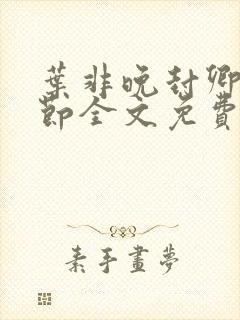 葉非晚封卿
節全文免費
素手畫夢